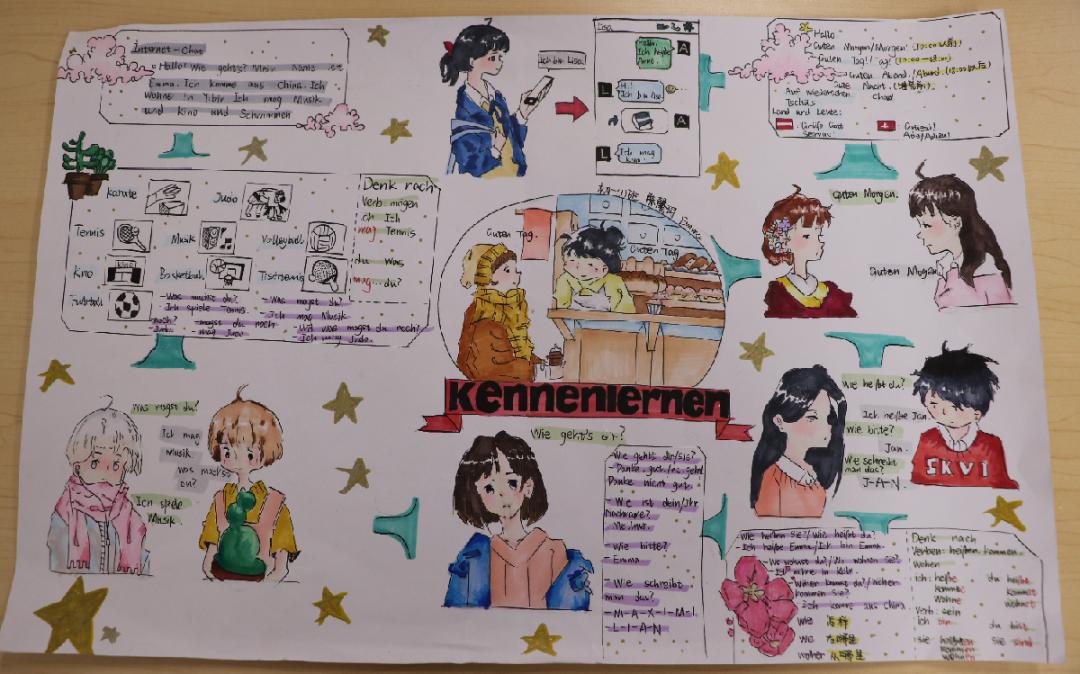 Internet-Chat
Hallo! Wie gehts? Mein Name ist
Emma. Ich komme aus China. Ich
wohne in Yibin Ich mag Musik
und Kino und Schwimmen
Ich bin Lisa.
Lisa
Hallo.
Ich heiße
Anne.
A
Hi!
Ich bin Lisa
L
A
L
Ich mag
Kino.
Hallo.
Guten Morgen/Morgen!
Guten Tag!/Tag!
Guten Abend./Abend.
Gute Nacht.
Auf wiedersehen Ciao
Tschüs
Land und Leute:
: Grüß Gott
Servus
: Grüezi!
Karate
Judo
Tennis
Musik
Volleyball
Kino
Basketball
Tischtennis
Fußball
- Was machst du?
- Ich spiele Tennis.
- Was magst du?
- Ich mag Musik
- Ich mag Judo.
Denk nach
Verb: mögen
ich Ich
mag Tennis
du Was
mag...du?
Guten Tag.
Guten Tag
Emma
Kennenlernen
Guten Morgen.
Guten Morgen
Was magst du?
Ich mag
Musik
was machst
du?
Ich spiele
Musik.
Wie geht's
- Wie geht's dir/Sie?
- Danke, gut./
Danke nicht gut.
- Wie ist dein/Ihr
Nachname?
- Wie bitte?
- Emma
- Wie schreibt
man das?
- M-A-X-I-M-I-
L-I-A-N
Wie heißt du?
Ich heiße Jan.
Wie bitte?
Jan.
Wie schreibt
man das?
J-A-N.
SKVI
Wie heißen Sie?/Wie heißt du?
- Ich heiße Emma/Ich bin Emma.
- Wo wohnst du?/Wo wohnen Sie?
- Ich wohne in Köln
- Woher kommst du?/Woher
kommen Sie?
- Ich komme aus China
wie 怎样
wo 在哪里
woher 从哪里
Denk nach
Verben: heißen kommen
wohen
ich heiße du heißt
komme kommst
wohne wohnst
Verb: sein
ich bin du bist
sie heißen sie sind
kommen
wohnen